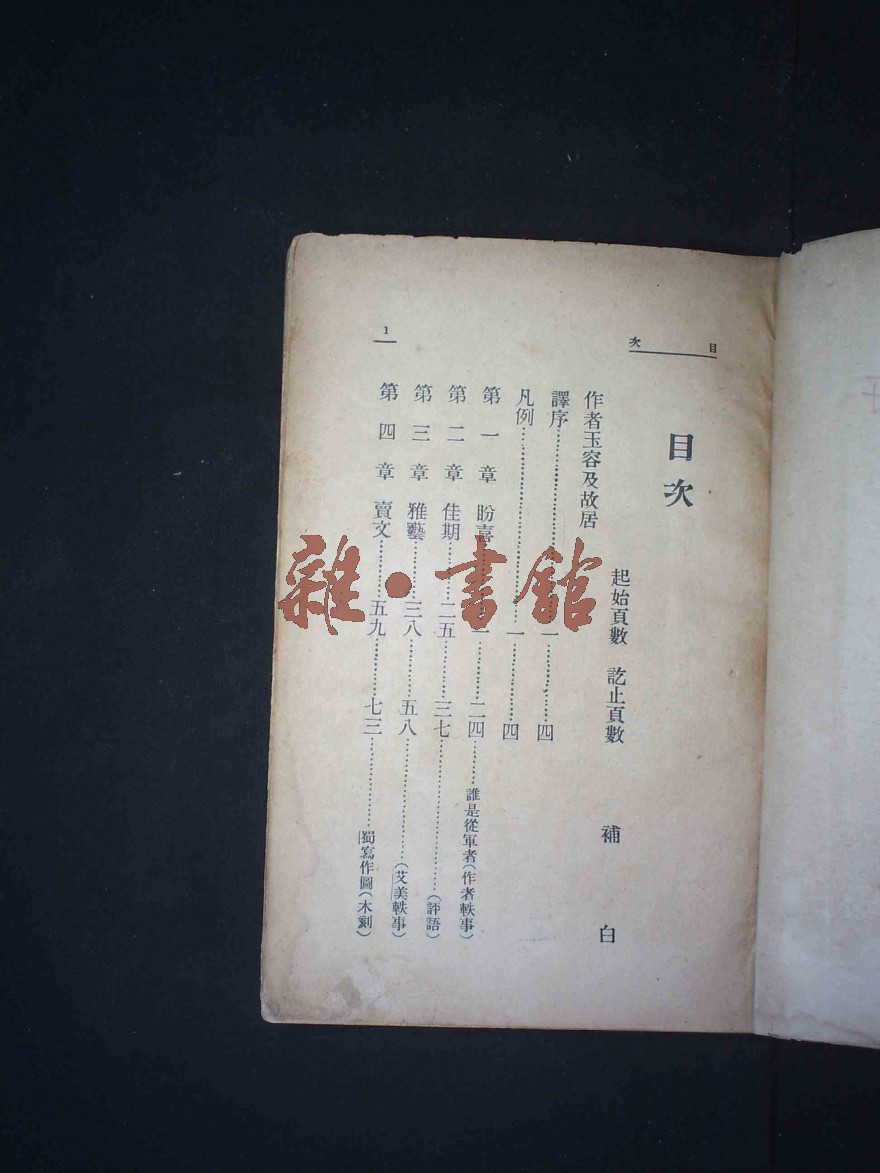 目次
目次
起始頁數 訖止頁數 補白
作者玉容及故居
譯序……一……四
凡例……一……四
第一章 盼喜……一……二四……誰是從軍者(作者軼事)
第二章 佳期……二五……三七……(評語)
第三章 雅藝……三八……五八……(艾美軼事)
第四章 賣文……五九……七三……蜀寫作圖(木刻)
1
雜·書館